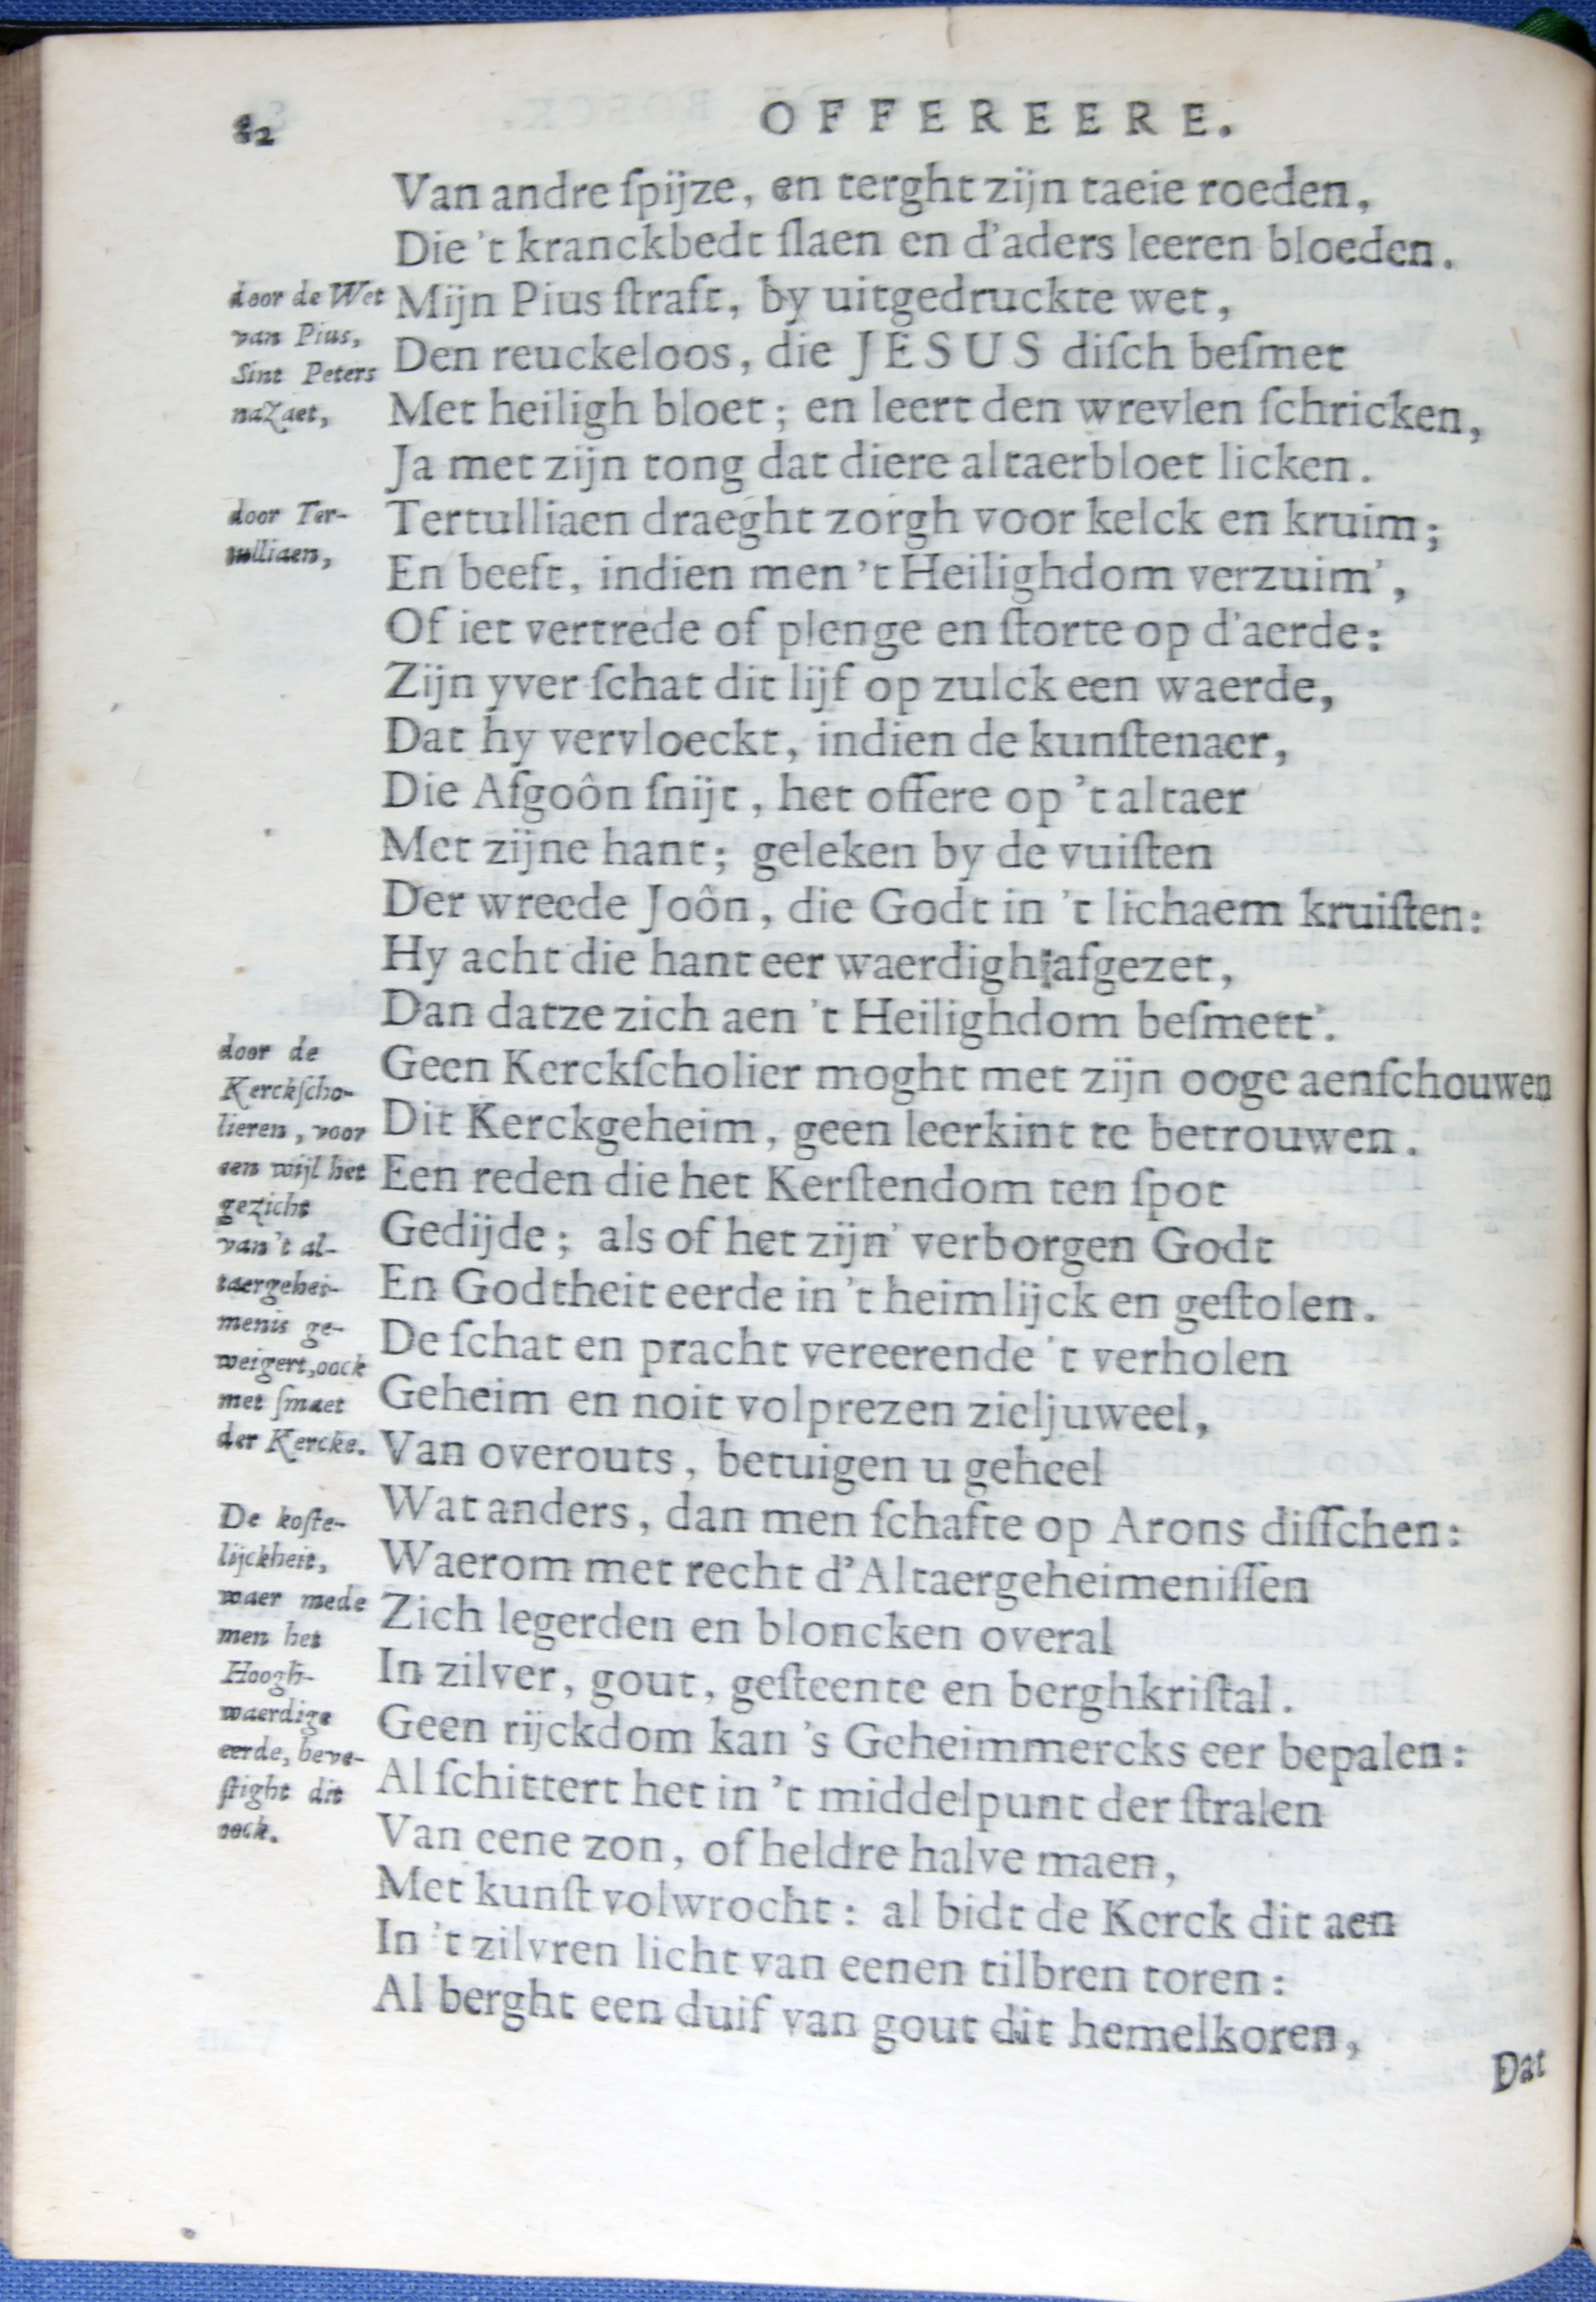 82
OFFEREERE.
Van andre ſpijze, en terght zijn taeie roeden,
Die 't kranckbedt ſlaen en d'aders leeren bloeden.
Mijn Pius ſtraft, by uitgedruckte wet,
Den reuckeloos, die JESUS diſch beſmet
Met heiligh bloet; en leert den wrevlen ſchricken,
Ja met zijn tong dat diere altaerbloet licken.
Tertulliaen draeght zorgh voor kelck en kruim;
En beeft, indien men 't Heilighdom verzuim',
Of iet vertrede of plenge en ſtorte op d'aerde:
Zijn yver ſchat dit lijf op zulck een waerde,
Dat hy vervloeckt, indien de kunſtenaer,
Die Afgoôn ſnijt, het offere op 't altaer
Met zijne hant; geleken by de vuiſten
Der wreede Joôn, die Godt in 't lichaem kruiſten:
Hy acht die hant eer waerdigh afgezet,
Dan datze zich aen 't Heilighdom beſmett'.
Geen Kerckſcholier moght met zijn ooge aenſchouwen
Dit Kerckgeheim, geen leerkint te betrouwen.
Een reden die het Kerſtendom ten ſpot
Gedijde; als of het zijn' verborgen Godt
En Godtheit eerde in 't heimlijck en geſtolen.
De ſchat en pracht vereerende 't verholen
Geheim en noit volprezen zieljuweel,
Van overouts, betuigen u geheel
Wat anders, dan men ſchafte op Arons diſſchen:
Waerom met recht d'Altaergeheimeniſſen
Zich legerden en bloncken overal
In zilver, gout, geſteente en berghkriſtal.
Geen rijckdom kan 's Geheimmercks eer bepalen:
Al ſchittert het in 't middelpunt der ſtralen
Van eene zon, of heldre halve maen,
Met kunſt volwrocht: al bidt de Kerck dit aen
In 't zilvren licht van eenen tilbren toren:
Al berght een duif van gout dit hemelkoren,
Dat
door de Wet
van Pius,
Sint Peters
nazaet,
door Ter-
tulliaen,
door de
Kerckſcho-
lieren, voor
een wijl het
gezicht
van 't al-
taergehei-
menis ge-
weigert, oock
met ſmaet
der Kercke.
De koſte-
lijckheit,
waer mede
men het
Hoogh-
waerdige
eerde, beve-
ſtight dit
oock.